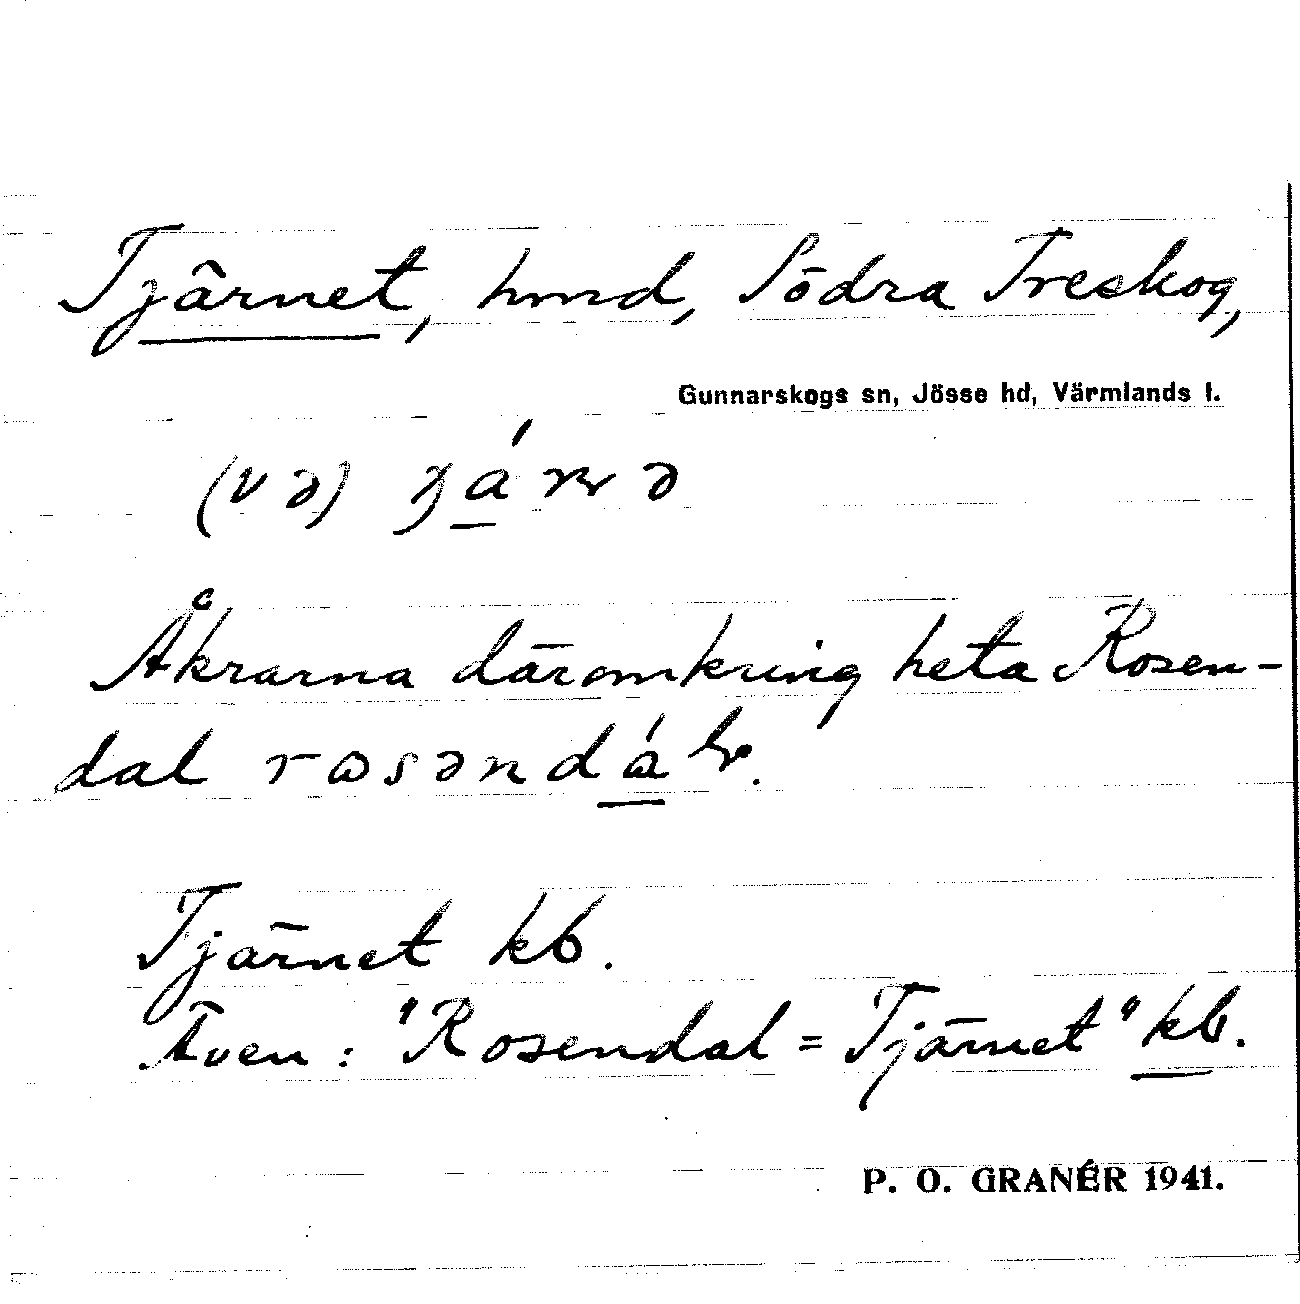 Tjärnet, hmd, Södra Treskog,
Gunnarskogs sn, Jösse hd, Värmlands l.
(və)
Åkrarna däromkring heta Rosen-
dal
Tjärnet kb.
Även : "Rosendal = Tjärnet" kb.
P. O. GRANÉR 1941.